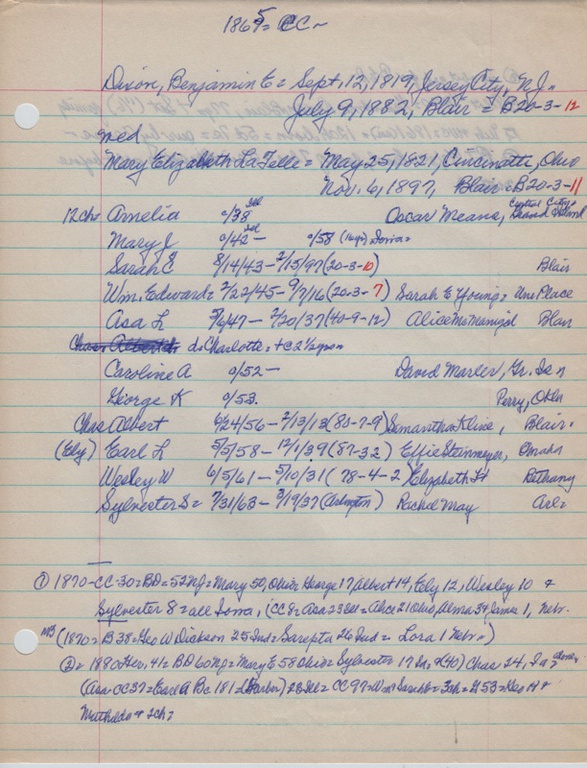 1865 = CC ~
Dixon, Benjamin E = Sept, 12, 1819, Jersey City, N.J. =
July 9, 1882, Blair = B20-3-12
med.
Mary Elizabeth LaTelle = May 25, 1821, Cincinatti, Ohio
Nov. 6, 1897, Blair = B20-3-11
12 ch = Amelia 0/38 Ill Oscar Means, Central City & Grand Island
Mary J 0/42 - Ill 0/58 Iowa =
Sarah E 8/14/43 - 2/15/97 (20-3-10) Blair
Wm. Edward = 2/22/45 - 9/7/16 (20-3-7) Sarah E Young = Uni Place
Asa L 7/6/47 - 2/20/37 (40-9-12) Alice McManigal Blair
d. Charlotte = + @ 2 1/2 yrs on
Caroline A 0/52 - David Marler, Gr. Is n
George K 0/53. Perry, Okla
Chas Albert 6/24/56 - 2/13/13 (80-7-9) Samantha Kline, Blair.
(Ely) Earl L 5/5/58 - 12/1/39 (87-32) Effie Steinmeyer, Omaha
Wesley W 6/5/61 - 5/10/31 (78-4-2) Elizabeth H Bethany
Sylvester S = 7/31/63 - 3/19/37 (Arlington) Rachel May Arl =
① 1870 - CC-30 = BD = 52 NJ = Mary 50, Ohio = George 17 Albert 14, Ely 12, Wesley 10 &
Sylvester 8 = all Iowa, (CC 8 = Asa 23 Ill = Alice 21 Ohio, Alma 3 James 1, Nebr.
NB (1870 = B 38 = Geo W Dickson 25 Ind = Sarepta 26 Ind = Lora 1 Nebr =)
② = 1880 Her 41 = BD 60 NJ = Mary E 58 Ohio = Sylvester 17 Ia = & (40) Chas 24, Ia = alone
(Asa CC 37 = Earl A Bc 181 = 22 Ill = CC 97 = Wm Sarah E = 3ch = 53 = Geo H &
Mathilda & 2ch =